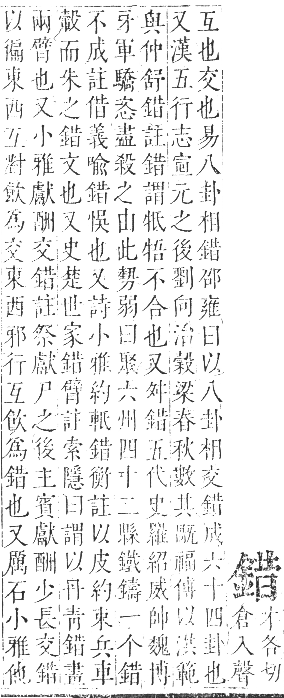 錯
各切
倉入聲
互也交也易八卦相錯邵雍曰以八卦相交錯成六十四卦也
又漢五行志宣元之後劉向治穀梁春秋數其旤福傳以洪範
與仲舒錯註錯謂牴牾不合也又舛錯五代史羅紹威帥魏博
牙軍驕恣盡殺之由此勢弱曰聚六州四十二縣鐵鑄一个錯
不成註借義喻錯悞也又詩小雅約軝錯衡註以皮約束兵車
轂而朱之錯文也又史楚世家錯臂註索隱曰謂以丹青錯畫
兩臂也又小雅獻酬交錯註祭獻尸之後主賓獻酬少長交錯
以徧東西互對飲為交東西邪行互飲為錯也又厲石小雅他